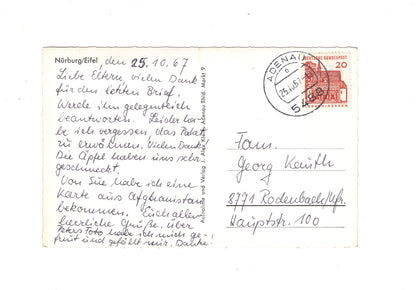 Nürburg/Eifel, den 25.10.67
Liebe Eltern, vielen Dank
für den letzten Brief.
Werde ihn gelegentlich
beantworten. Leider ha-
be ich vergessen, das Paket
zu erwähnen. Vielen Dank!
Die Äpfel haben uns sehr
geschmeckt.
Von habe ich eine
Karte aus Afghanistan
bekommen. Euch allen
herrliche Grüße. Über
Peters Foto habe ich mich ge-
freut und gefällt mir. Danke.
Aufnahme und Verlag J. Adenau Markt 9
ADENAU
25.10.67
5488
DEUTSCHE BUNDESPOST
20
Fam.
Georg
8771 Rodenbach/
Hauptstr. 100